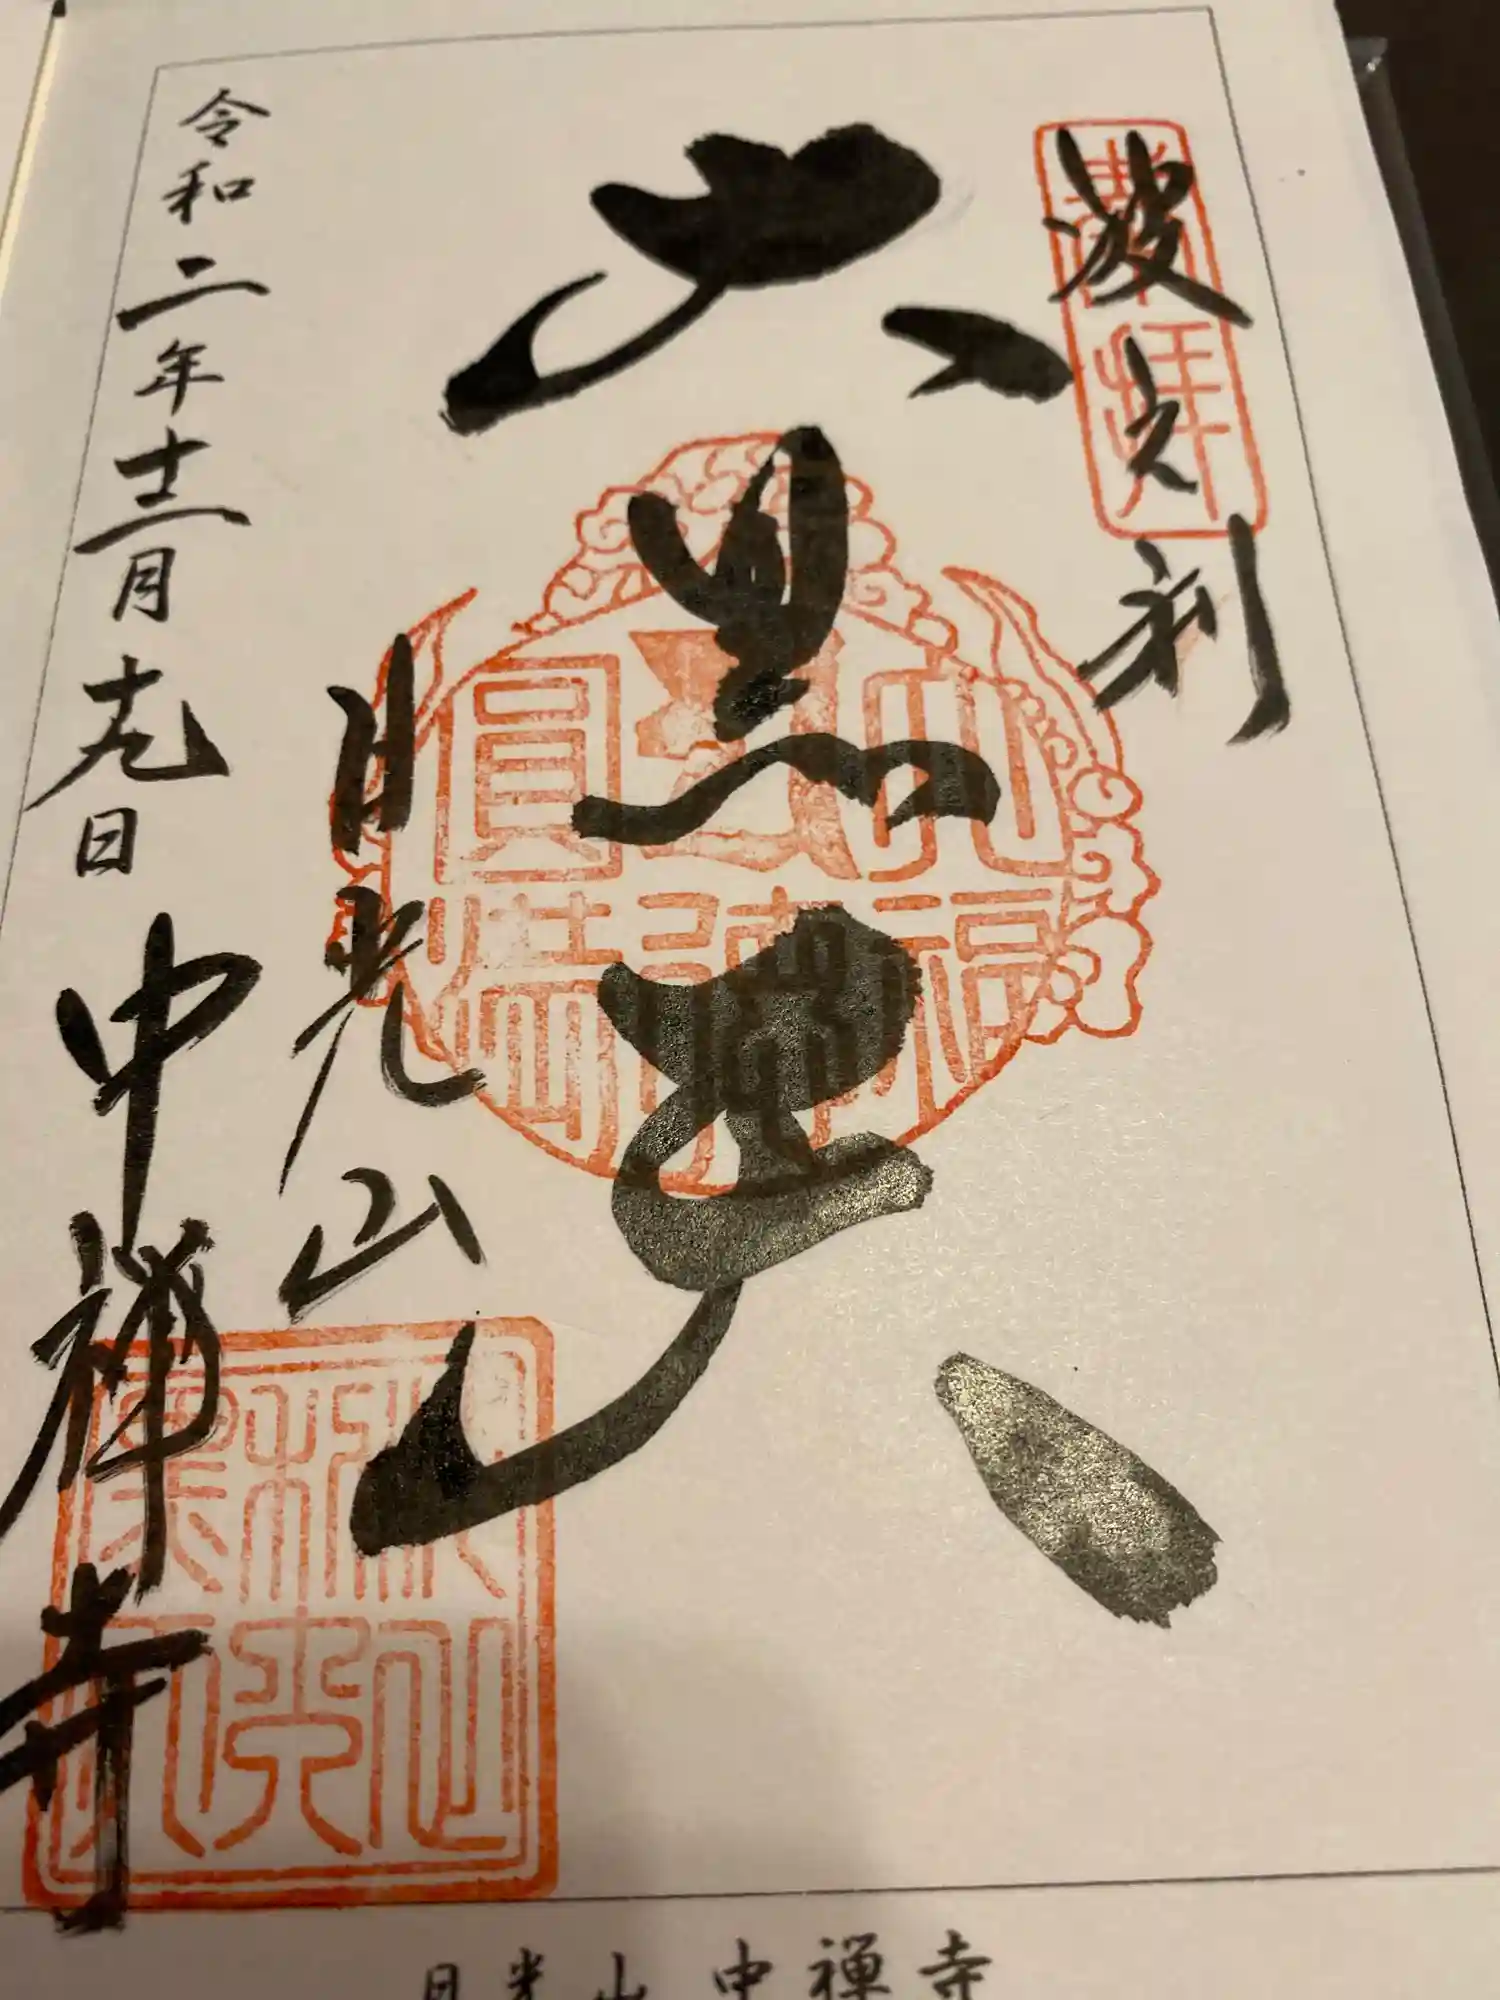 奉拝
波之利
大黒天
日光山
中禅寺
令和二年十二月十九日
日光山中禅寺